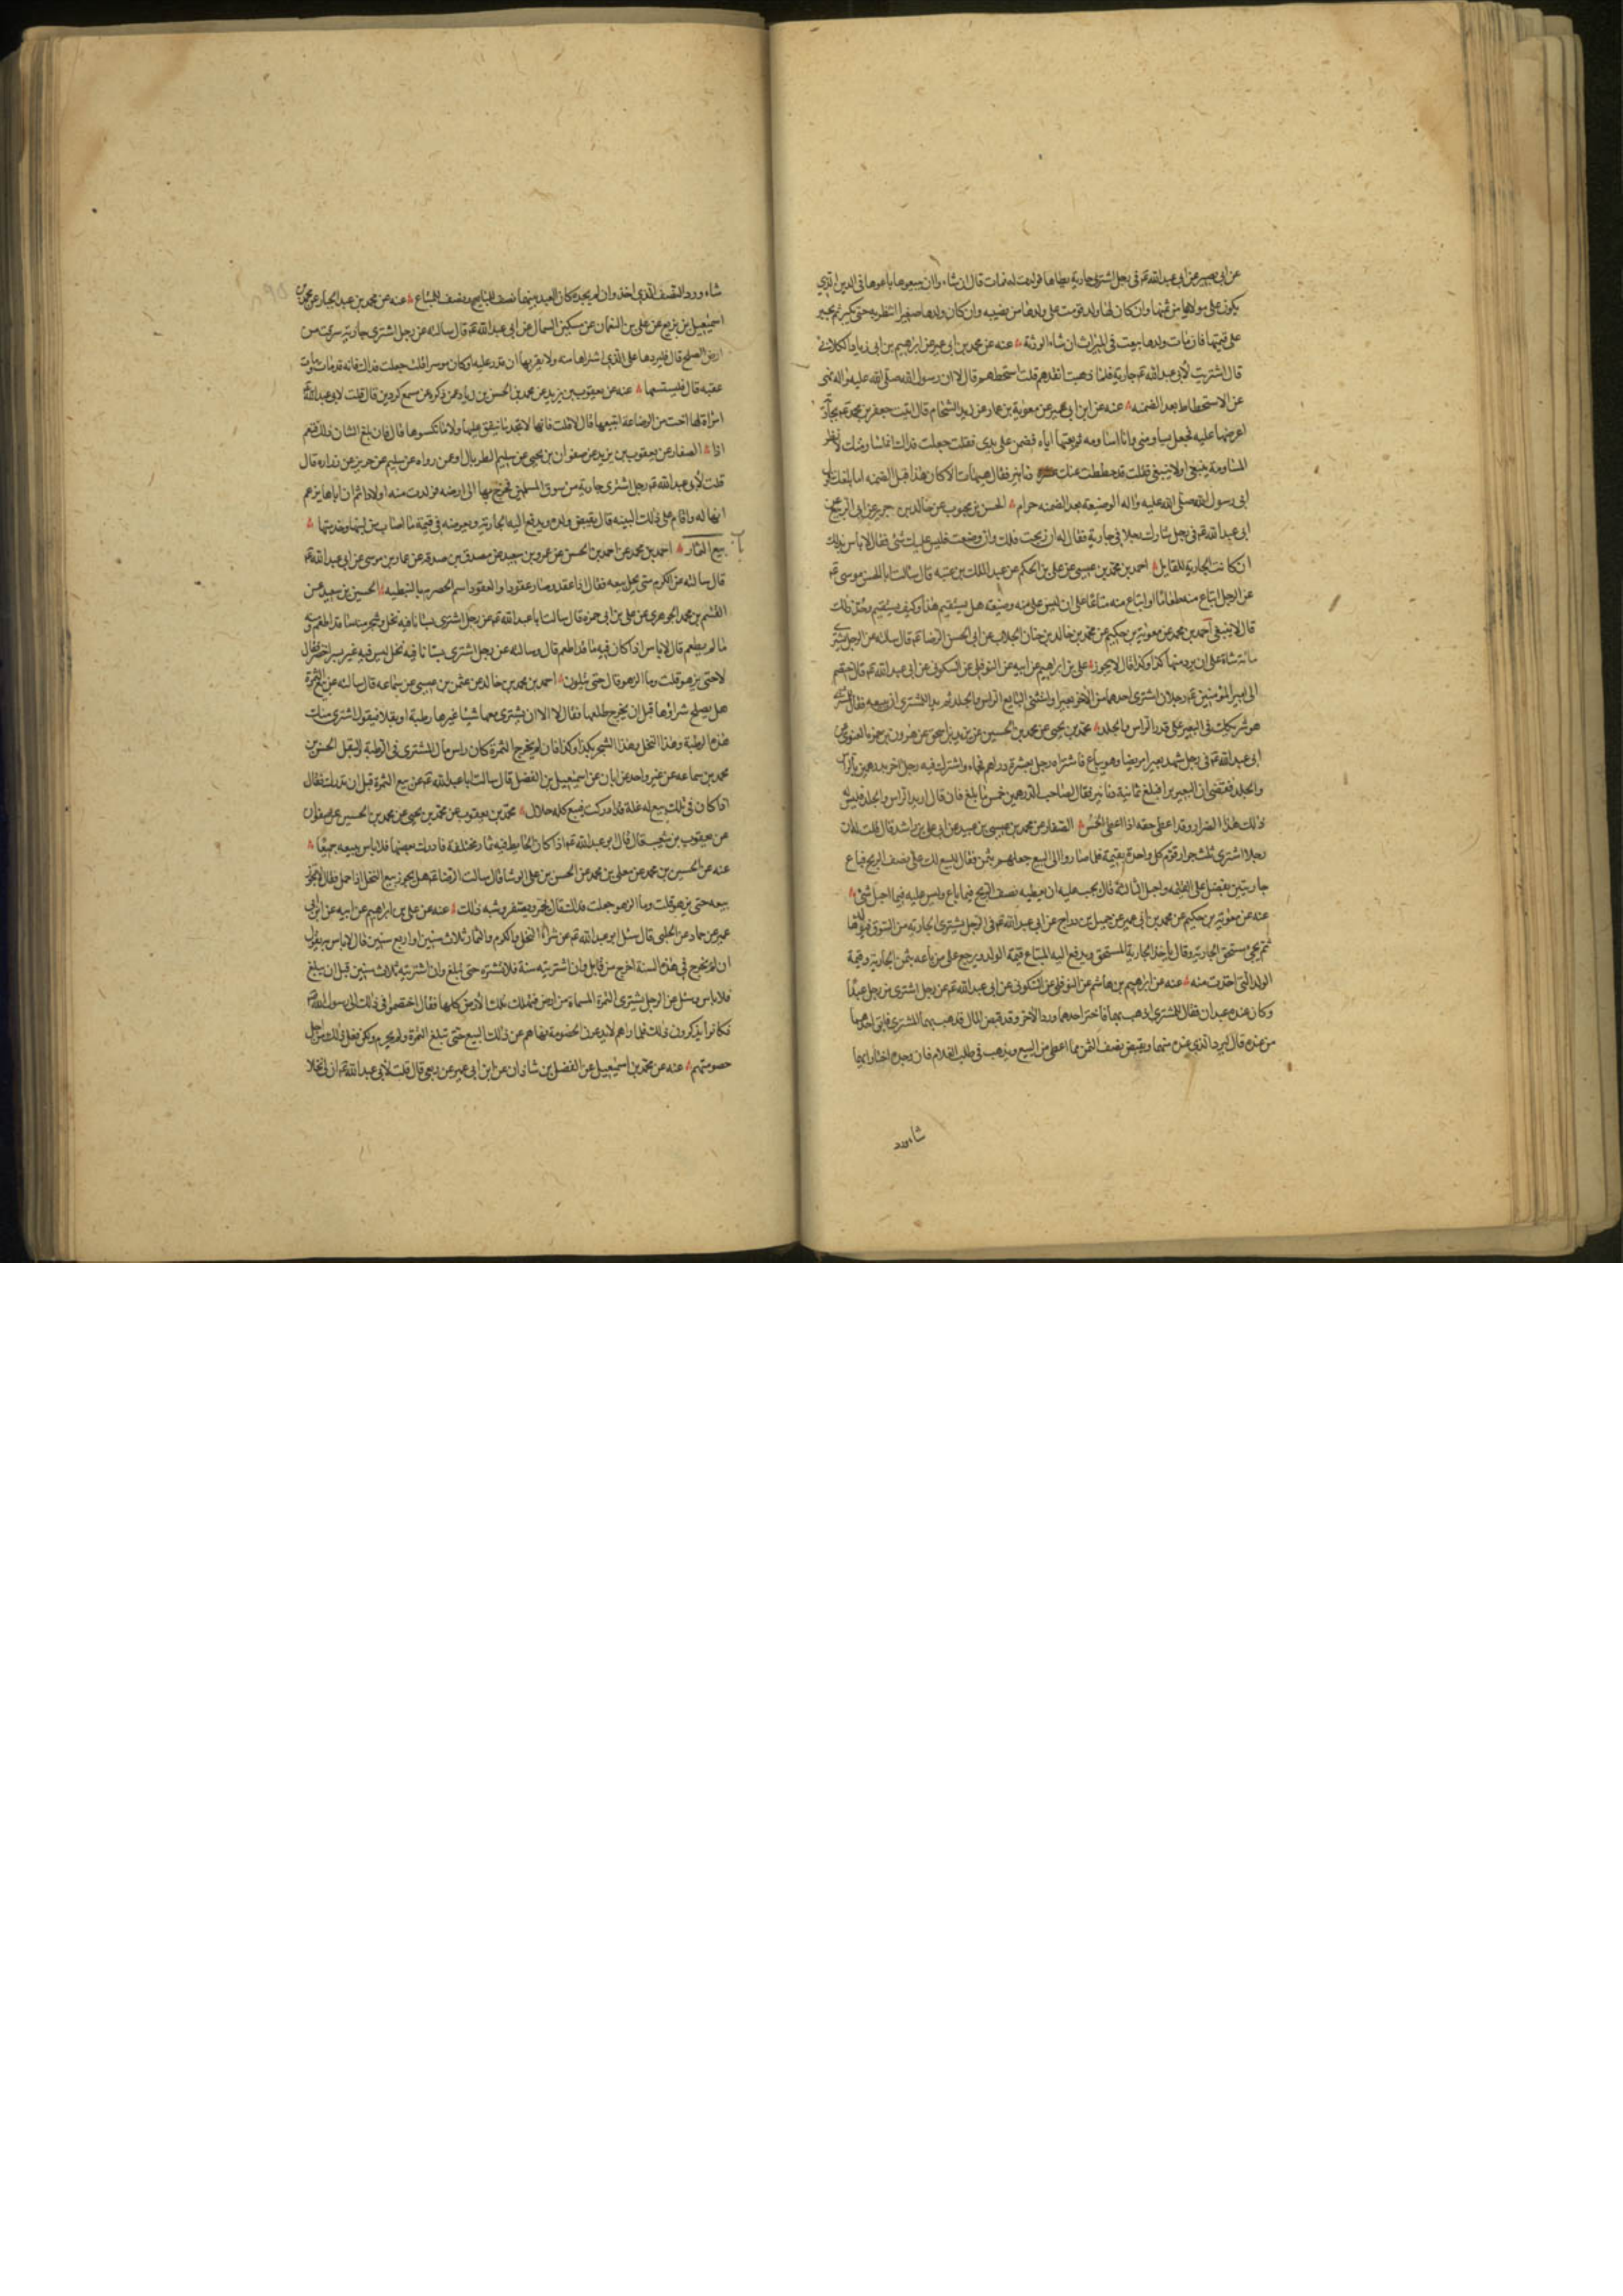 عن ابى بصير عن ابى عبد الله ع‍م فى رجل اشترى جارية يطاها فولدت له فمات قال ان شاء وا ان يبيعوها باعوها فى الدين الذى
يكون على مولاها من ثمنها وان كان لها ولد قومت على ولدها من نصيبه وان كان ولدها صغيرا انتظر به حتى يكبر ثم يجبر
على قيمتها فان مات ولدها بيعت فى الميراث ان شاء الورثة عنه عن محمد بن ابى عمير عن ابرهيم بن ابى زياد الكلابى
قال اشتريت لأبى عبد الله ع‍م جارية فلما ذهبت انقدهم قلت استحطهم قال لا ان رسول الله صلى الله عليه واله نهى
عن الاستحطاط بعد الضمنه عنه عن ابن ابى عمير عن معوية بن عمار عن زيد الشحام قال اتيت جعفر بن محمد ع‍م بجارية
اعرضها عليه فجعل يساومنى وانا اساومه ثم بعتها اياه فضمن على يدى فقلت جعلت فداك انما ساومتك لأنظر
المساومة ينبغى اولا ينبغى فقلت قد حططت عنك عشرة دنانير فقال هيهات الا كان هذا قبل الضمنه اما بلغك قول
ابى رسول الله صلى الله عليه واله الوضيعة بعد الضمنه حرام الحسن بن محبوب عن خالد بن جرير عن ابى الربيع عن
ابى عبد الله ع‍م فى رجل شارك رجلا فى جارية فقال له ان ربحت فلك وان وضعت فليس عليك شئ فقال لا باس بذلك
ان كانت الجارية للقايل احمد بن محمد بن عيسى عن على بن الحكم عن عبد الملك بن عتبه قال سالت ابا الحسن موسى ع‍م
عن الرجل ابتاع منه طعاما او ابتاع منه متاعا على ان ليس على منه وضيعة هل يستقيم هذا وكيف يستقيم وحد ذلك
قال لا ينبغى احمد بن محمد عن معوية بن حكيم عن محمد بن خالد بن حنان الجلاب عن ابى الحسن الرضا ع‍م قال سالته عن الرجل يشترى
مائة شاة على ان يرد منها كذا وكذا قال لا يجوز على بن ابراهيم عن ابيه عن النوفلى عن السكونى عن ابى عبد الله ع‍م قال اختصم
الى امير المؤمنين ع‍م رجلان اشترى احدهما من الاخر بعيرا واستثنى البايع الراس والجلد ثم بدا للمشترى ان يبيعه فقال للمشترى
هو شريكك فى البعير على قدر الراس والجلد محمد بن يحيى عن محمد بن الحسين عن يزيد بن اسحق عن هرون بن حمزه الغنوى عن
ابى عبد الله ع‍م فى رجل شهد بعيرا مريضا وهو يباع فاشتراه رجل بعشرة دراهم فجاء واشترك فيه رجل اخر بدرهمين بالراس
والجلد فقضى ان البعير برأ فبلغ ثمانية دنانير فقال لصاحب الدرهمين خمس ما بلغ فان قال اريد الراس والجلد فليس له
ذلك هذا الضرار وقد اعطى حقه اذا اعطى الخمس الصفار عن محمد بن عيسى بن عبيد عن ابى على بن راشد قال قلت له ان
رجلا اشترى ثلث جوار قوم كل واحدة بقيمة فلما صاروا الى البيع جعلهم بثمن فقال للبيع لك على نصف الربح فباع
جاريتين بفضل على القيمه واحبل الثالثة قال يجب عليه ان يعطيه نصف الربح فيما باع وليس عليه فيما احبل شئ
عنه عن معوية بن حكيم عن محمد بن ابى عمير عن جميل بن دراج عن ابى عبد الله ع‍م فى الرجل يشترى الجارية من السوق فيولدها
ثم يجئ مستحق الجارية وقال ياخذ الجارية المستحق ويدفع اليه المبتاع قيمة الولد ويرجع على من باعه بثمن الجارية وقيمة
الولد التى اخذت منه عنه عن ابراهيم بن هاشم عن النوفلى عن السكونى عن ابى عبد الله ع‍م عن رجل اشترى من رجل عبدا
وكان عنده عبدان فقال للمشترى اذهب بهما فاختر احدهما ورد الاخر وقد قبض المال فذهب بهما المشترى فابق احدهما
من عنده قال ليرد الذى عنده منهما ويقبض نصف الثمن مما اعطى من البيع ويذهب فى طلب الغلام فان وجده اختار ايهما
شاء ورد
شاء ورد النصف الذى اخذ وان لم يجد كان العبد بينهما نصف للبايع ونصف للمبتاع عنه عن محمد بن عبد الجبار عن محمد بن
اسمعيل بن بزيع عن على بن النعمان عن مسكين السمان عن ابى عبد الله ع‍م قال سالته عن رجل اشترى جارية سرقت من
ارض الصلح قال فليردها على الذى اشتراها منه ولا يقربها ان قدر عليه او كان موسرا قلت جعلت فداك فانه قد مات ومات
عقبه قال فليستسعها عنه عن يعقوب بن يزيد عن محمد بن الحسن بن زياد عمن ذكره عن مسمع كردين قال قلت لابى عبد الله ع‍م
امراة لها اخت من الرضاعة اتبيعها قال لا قلت فانها لا تجد ما تنفق عليها ولا ما تكسوها قال فان بلغ الشان ذلك فنعم
اذا الصفار عن يعقوب بن يزيد عن صفوان بن يحيى عن سليم الطربال او عمن رواه عن سليم عن حريز عن زراره قال
قلت لأبى عبد الله ع‍م رجل اشترى جارية من سوق المسلمين فخرج بها الى ارضه فولدت منه اولادا ثم ان اباها يزعم
انها له واقام على ذلك البينه قال يقبض ولده ويدفع اليه الجارية ويعوضه فى قيمة ما اصاب من لبنها وخدمتها
بيع الثمار احمد بن محمد عن احمد بن الحسن عن عمرو بن سعيد عن مصدق بن صدقه عن عمار بن موسى عن ابى عبد الله ع‍م
قال سالته عن الكرم متى يحل بيعه فقال اذا عقد وصار عقودا والعقود اسم الحصرم بالنبطيه الحسين بن سعيد عن
القسم بن محمد الجوهرى عن على بن ابى حمزه قال سالت ابا عبد الله ع‍م عن رجل اشترى بستانا فيه نخل وشجر منه ما قد اطعم ومنه
ما لم يطعم قال لا باس اذا كان فيه ما قد اطعم قال وسالته عن رجل اشترى بستانا فيه نخل ليس فيه غير بسر اخضر فقال
لا حتى يزهو قلت وما الزهو قال حتى يتلون احمد بن محمد بن خالد عن عثمن بن عيسى عن سماعه قال سالته عن بيع الثمرة
هل يصلح شراؤها قبل ان يخرج طلعها فقال لا الا ان يشترى معها شيئا غيرها رطبة او بقلا فيقول اشترى منك
هذه الرطبة وهذا النخل وهذا الشجر بكذا وكذا فان لم يخرج الثمرة كان راس مال المشترى فى الرطبة والبقل الحسن بن
محمد بن سماعه عن غير واحد عن ابان عن اسمعيل بن الفضل قال سالت ابا عبد الله ع‍م عن بيع الثمرة قبل ان تدرك فقال
اذا كان فى تلك بيع له غلة قد ادركت فبيع كله حلال محمد بن يعقوب عن محمد بن يحيى عن محمد بن الحسين عن صفوان
عن يعقوب بن شعيب قال قال ابو عبد الله ع‍م اذا كان الحايط فيه ثمار مختلفة فادرك بعضها فلا باس ببيعه جميعا
عنه عن الحسين بن محمد عن معلى بن محمد عن الحسن بن على الوشا قال سالت الرضا ع‍م هل يجوز بيع النخل اذا حمل فقال لا يجوز
بيعه حتى يزهو قلت وما الزهو جعلت فداك قال يحمر ويصفر وشبه ذلك عنه عن على بن ابرهيم عن ابيه عن ابن ابى
عمير عن حماد عن الحلبى قال سئل ابو عبد الله ع‍م عن شراء النخل والكرم والثمار ثلاث سنين او اربع سنين قال لا باس به يقول
ان لم يخرج فى هذه السنة اخرج من قابل وان اشتريته سنة فلا تشتره حتى يبلغ وان اشتريته ثلاث سنين قبل ان يبلغ
فلا باس وسئل عن الرجل يشترى الثمرة المسماة من ارض فتهلك تلك الأرض كلها فقال اختصموا فى ذلك الى رسول الله ص
فكانوا يذكرون ذلك فلما راهم لا يدعون الخصومة نهاهم عن ذلك البيع حتى تبلغ الثمرة ولم يحرم ولكن فعل ذلك من اجل
خصومتهم عنه عن محمد بن اسمعيل عن الفضل بن شاذان عن ابن ابى عمير عن ربعى قال قلت لأبى عبد الله ع‍م ان لى نخلا